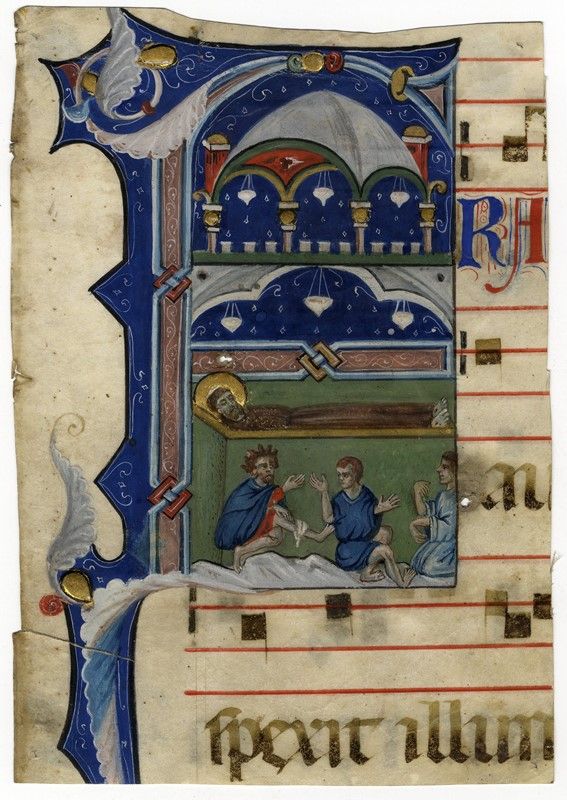 FRA
spexit illum